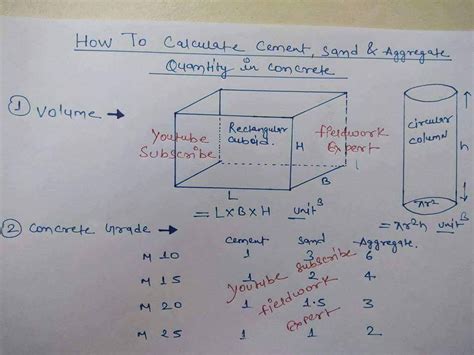 How To Calculate Cement, Sand & Aggregate
Quantity in Concrete
① Volume →
Youtube
Subscribe
Rectangular
Cuboid.
fieldwork
Expert
H
B
L
= L×B×H unit³
circular
column
h
πr²
= πr²h unit³
② Concrete Grade → cement sand Aggregate.
M 10 1 3 6
M 15 1 2 4
M 20 1 1.5 3
M 25 1 1 2
youtube subscribe
fieldwork
Expert